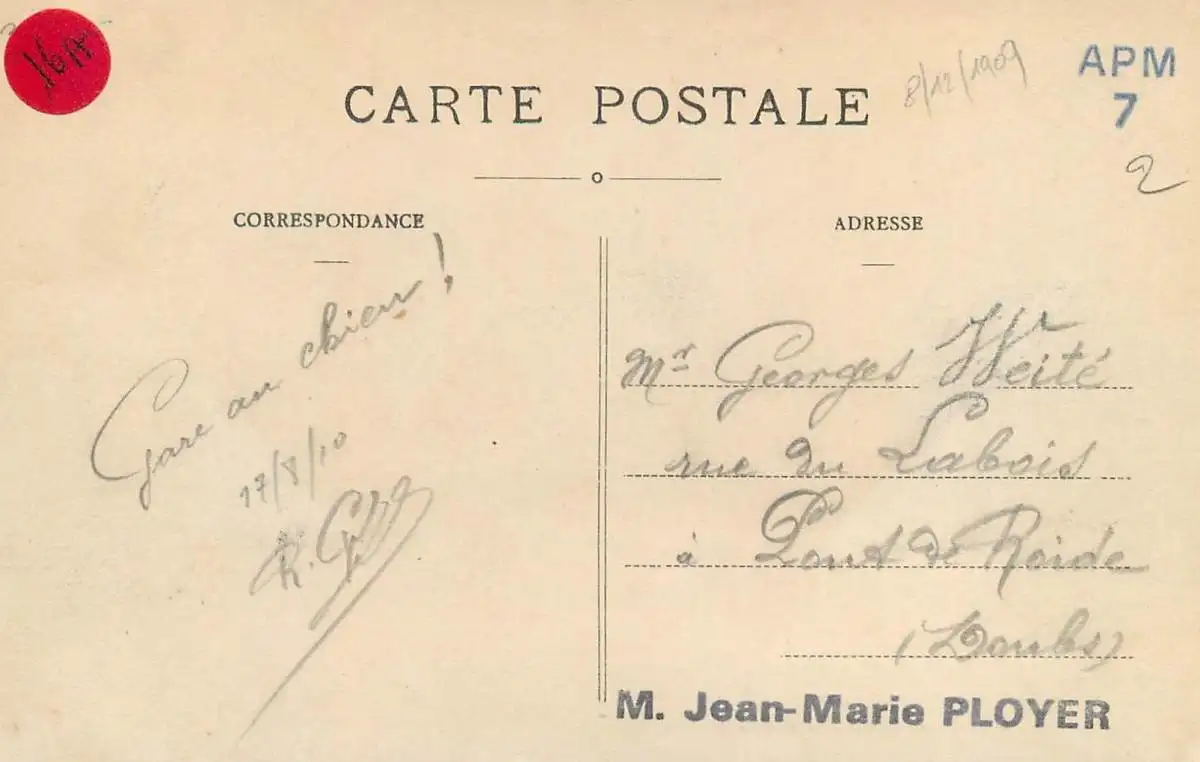 16A
CARTE POSTALE
8/12/1909
APM
7
2
CORRESPONDANCE
Gare au chien !
17/8/10
R.
ADRESSE
Mr Georges Weité
rue du Labois
à Pont de Roide
(Doubs)
M. Jean-Marie PLOYER